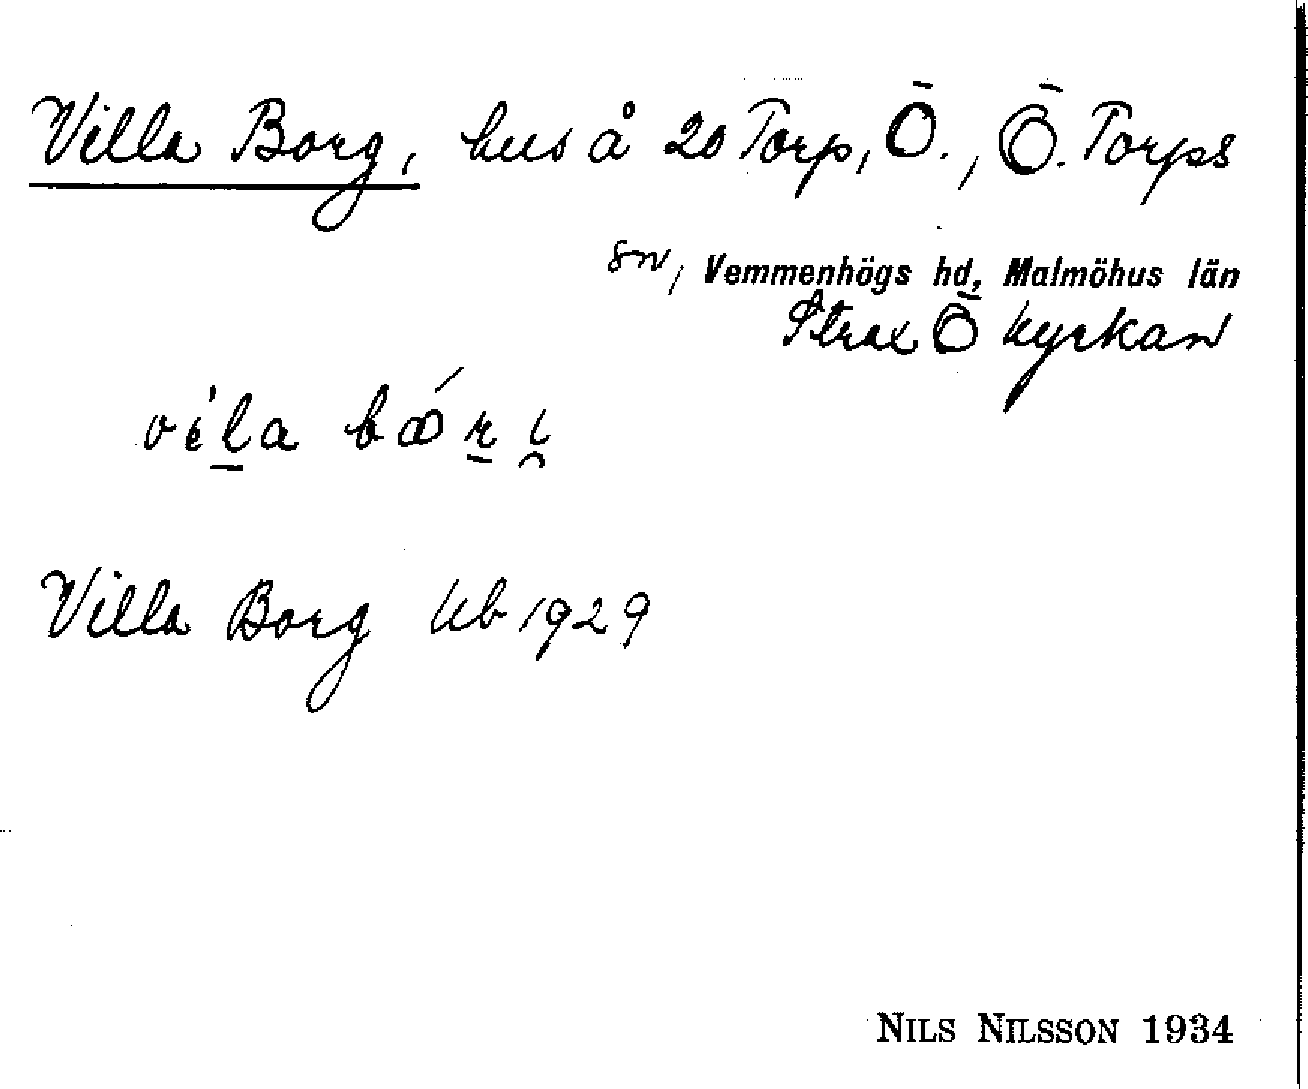 Villa Borg, hus å 20 Torp, Ö., Ö. Torps
sn, Vemmenhögs hd, Malmöhus län
Strax Ö kyrkan
Villa Borg kb 1929
NILS NILSSON 1934